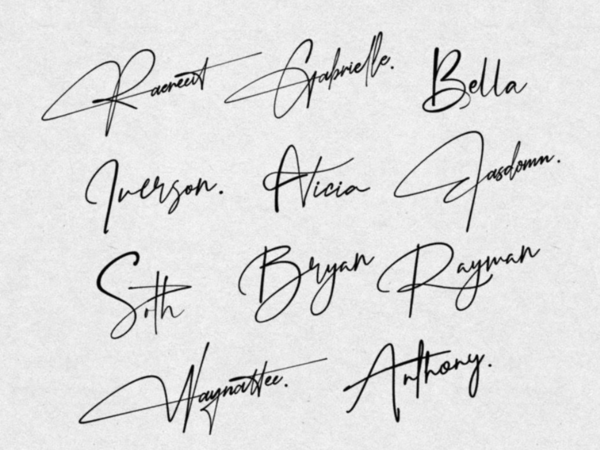 Raereeit Gabrielle. Bella
Iverson. Alicia Jasdomn.
Soth Bryan Rayman
Waynattee. Anthony.